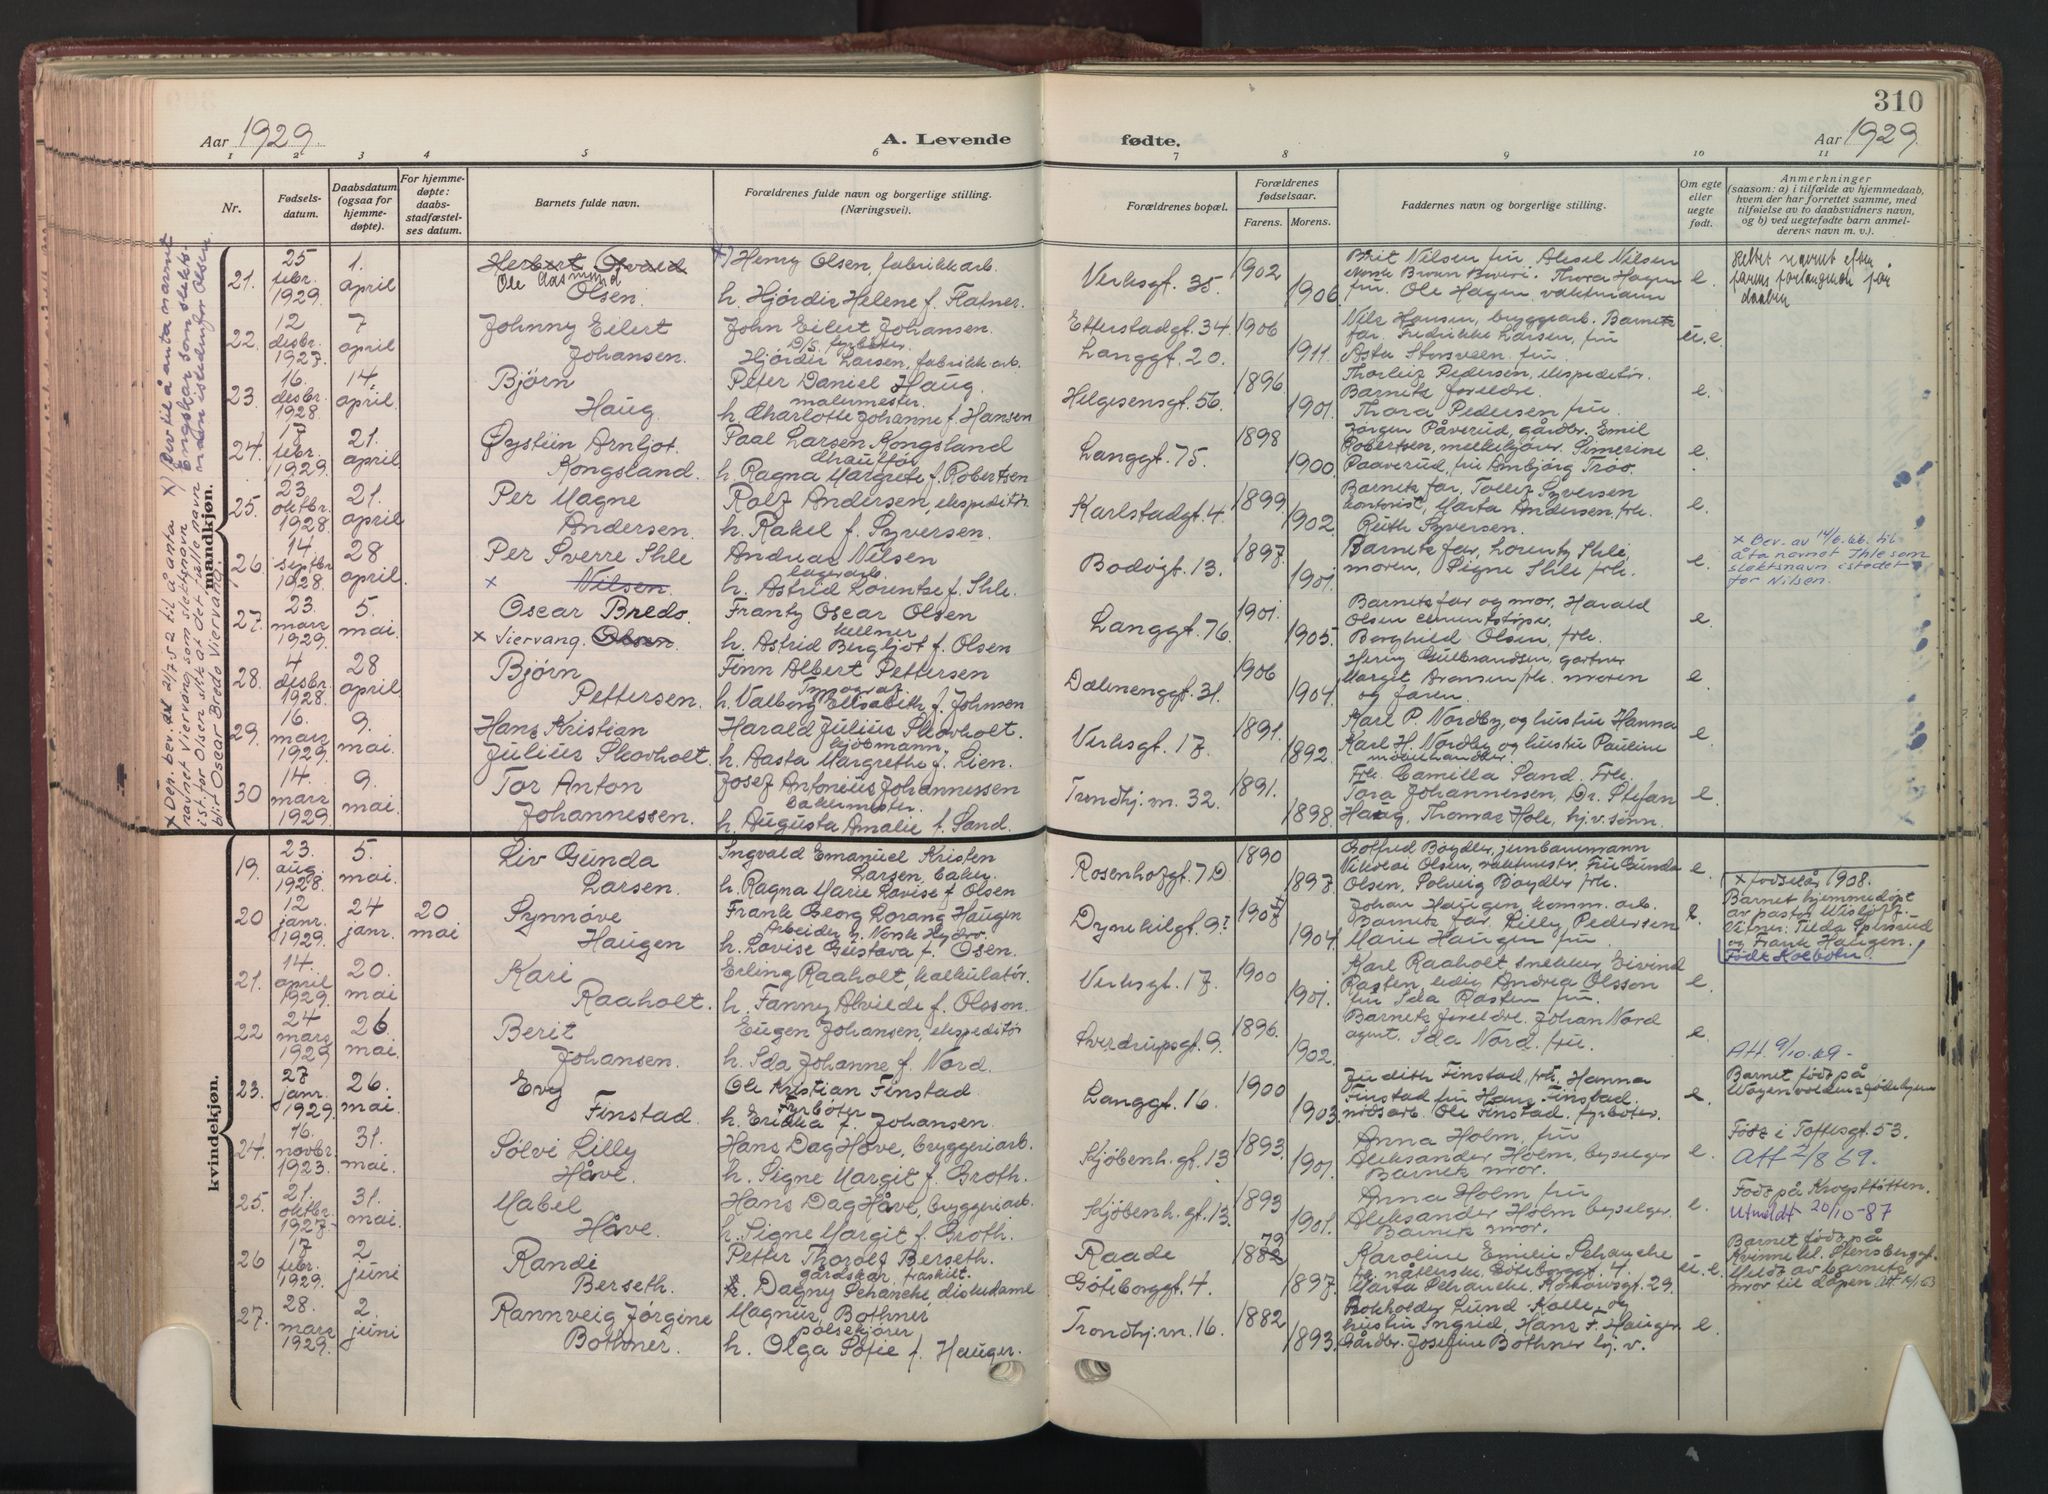 310
Aar 1929.
A. Levende
fødte.
Aar 1929.
1 2 3 4 5 6 7 8 9 10 11
Nr.
Fødsels-
datum.
Daabsdatum
(ogsaa for
hjemme-
døpte).
For hjemme-
døpte:
daabs-
stadfæstel-
ses datum.
Barnets fulde navn.
Forældrenes fulde navn og borgerlige stilling.
(Næringsvei).
Forældrenes bopæl.
Forældrenes
fødselsaar.
Farens. Morens.
Faddernes navn og borgerlige stilling.
Om egte
eller
uegte
født.
Anmerkninger
(saasom: a) i tilfælde av hjemmedaab,
hvem der har forrettet samme, med
tilføielse av to daabsvidners navn,
og b) ved uegtefødte barn anmel-
derens navn m. v.).
mandkjøn.
x Dep. bev. av 21/7.52 til å anta
navnet Viervang som slektsnavn
ist. for Olsen slik at det fulle navn
blir Oscar Bredo Viervang.
21. 25 febr. 1929. 1. april
Herbert Osvald
Ole Aasmund
Olsen.
x) Henry Olsen, fabrikkarb.
h. Hjördis Helene f. Flatner.
Verksgt. 35. 1902 1906
Brit Nilsen fru Aksel Nilsen
Norsk Brown Boveri. Thora Hagen
fru. Ole Hagen, vaktmann
e.
Rettet navnet efter
farens forlangende før
daaben
22. 12 desbr. 1927. 7 april
Johnny Eilert
Johansen.
John Eilert Johansen.
D/S. fyrböter.
Hjördis Larsen, fabrikkarb.
Etterstadgt. 34. 1906
Langgt. 20. 1911.
Nils Hansen, bryggearb. Barnets
far. Fredrikke Larsen, fru
Asta Storsveen. fru.
u. e.
23. 16. desbr. 1928 14. april.
Bjørn
Haug.
Peter Daniel Haug.
malermester.
h. Charlotte Johanne f. Hansen
Helgesensgt. 56. 1896 1901.
Thorleif Pedersen, ekspeditör.
Barnets foreldre.
Thora Pedersen fru.
e.
24. 17 febr. 1929. 21. april
Øystein Arnljot.
Kongsland.
Paal Larsen Kongsland
chaufför
h. Ragna Margrete f. Robertsen
Langgt. 75. 1898 1900.
Jørgen Påverud, gårdbr. Emil
Robertsen, melkekjörer. Simerine
Paaverud, fru Ambjörg Troo.
e.
25. 23. oktbr. 1928 21. april
Per Magne
Andersen.
Rolf Andersen, ekspeditör.
h. Rakel f. Syversen.
Karlstadgt. 4. 1899. 1902.
Barnets far. Tollef Syversen
kontorist, Marta Andersen, frk.
Ruth Syversen.
e.
26. 14 septbr 1928 28 april.
Per Sverre Ihle
x Nilsen
Andreas Nilsen
lagerarb.
h. Astrid Lorentze f. Ihle.
Bodøgt. 13. 1897. 1901.
Barnets far, Lorentz Ihle,
moren, Signe Ihle frk.
e.
x Bev. av 14/6.66. til
å ta navnet Ihle som
slektsnavn istedet
for Nilsen.
27. 23. mars 1929. 5. mai.
Oscar Bredo.
x Viervang. Olsen
Frantz Oscar Olsen
kellner
h. Astrid Bergljot f. Olsen
Langgt. 76. 1901. 1905.
Barnets far og mor. Harald
Olsen cementstöper.
Borghild Olsen, frk.
e.
28. 4 desbr. 1928. 28 april
Bjørn
Pettersen.
Finn Albert Pettersen
Typograf
h. Valborg Elisabeth f. Johnsen
Dælenenggt. 31. 1906 1904.
Henry Gulbrandsen, gartner
Margit Aronsen frk. moren
og faren.
e.
29. 16. mars 1929 9. mai.
Hans Kristian
Julius Skovholt.
Harald Julius Skovholt.
kjöbmann.
h. Aasta Margrethe f. Lien.
Verksgt. 17. 1891. 1892.
Karl P. Nordby, og hustru Hanna
Karl H. Nordby og hustru Pauline
möbelhandler.
e.
30 14. mars 1929 9. mai
Tor Anton
Johannessen.
Josef Antonius Johannessen
bakermester.
h. Augusta Amalie f. Sand.
Trondhj.m. 32. 1891. 1898.
Frk. Camilla Sand. Frk.
Tora Johannessen, Dr. Stefan
Haug, Thomas Hole, hj.v. sönn.
e.
kvindekjøn.
19. 23. aug. 1928. 5. mai.
Liv Gunda
Larsen.
Ingvald Emanuel Kristen
Larsen, baker.
h. Ragna Marie Lovise f. Olsen
Rosenhofgt. 7 D. 1890 1897.
Gotfred Böydler, jernbanemann
Nikolai Olsen, vaktmestr. Fru Gunda
Olsen, Solveig Böydler frk.
e.
20 12 janr. 1929. 24 janr. 20 mai
Synnöve
Haugen
Frank Georg Lorang Haugen
Arbeider v. Norsk Hydro.
h. Lovise Gustava f. Osen.
Dynekilgt. 9. 1907 1904.
Johan Haugen, komm. arb.
Barnets far. Lilly Pedersen
Marie Haugen fru.
e.
x fødselsår 1908.
Barnet hjemmedöpt
av pastor Wislöff.
og Frank Haugen.
Født Kolbotn.
21. 14. april 1929. 20. mai
Kari
Raaholt.
Erling Raaholt, kalkulatör.
h. Fanny Alvilde f. Olsson.
Verksgt. 17. 1900 1901.
Karl Raaholt snekker, Eivind
Rasten, Andrea Olsson
fru Ida Rasten fru.
e.
22 24 mars 1929 26. mai.
Berit
Johansen.
Eugen Johansen, ekspeditör
h. Ida Johanne f. Nord.
Sverdrupsgt. 9. 1896. 1902.
Barnets foreldre. Johan Nord
agent. Ida Nord. fru.
e.
Att. 9/10.69-
23. 27 janr. 1929. 26. mai.
Evy
Finstad.
Ole Kristian Finstad
Fyrböter
h. Erikka f. Johansen.
Langgt. 16. 1900 1903.
Judith Finstad, frk. Hanna
Finstad fru Hans Finstad.
nödsarb. Ole Finstad. fyrböter.
e.
Barnet född på
24. 16. novbr. 1923. 31. mai.
Sölvi Lilly
Håve.
Hans Dag Håve, bryggeriarb.
h. Signe Margit f. Groth.
Kjöbenh. gt. 13 1893. 1901.
Anna Holm, fru
Aleksander Holm, byselger
Barnets mor.
e.
Född i Toftesgt. 53.
Att 2/8 69.
25. 21. oktbr. 1927. 31. mai.
Mabel
Håve.
Hans Dag Håve, bryggeriarb.
h. Signe Margit f. Groth.
Kjöbenh. gt. 13. 1893 1901.
Anna Holm fru
Aleksander Holm byselger.
Barnets mor.
e.
Född på Krogstötten.
Utmeldt 20/10-87
26 17 febr. 1929. 2. juni
Randi
Berseth.
Petter Thorolf Berseth.
gårdskar, fraskilt.
Dagny Schanche diskudame
Raade 1882 79
Göteborggt. 4. 1897.
Karoline Emilie Schanche
Göteborggt. 4.
Marta Schanche. 29.
u. e.
Barnet född på
Kvinnekl. Stensberggt.
Meldt av barnets
mor til dåpen. Att 4/1 63
27. 28. mars 1929 2. juni
Rannveig Jörgine
Bothner.
Magnus Bothner
pölsekjörer
h. Olga Sofie f. Hauger.
Trondhj.m. 16. 1882 1893.
Bokholder Lund Kolle og
hustru Ingrid, Hans F. Hauger
Gårdbr. Josefine Bothner hj. v.
e.